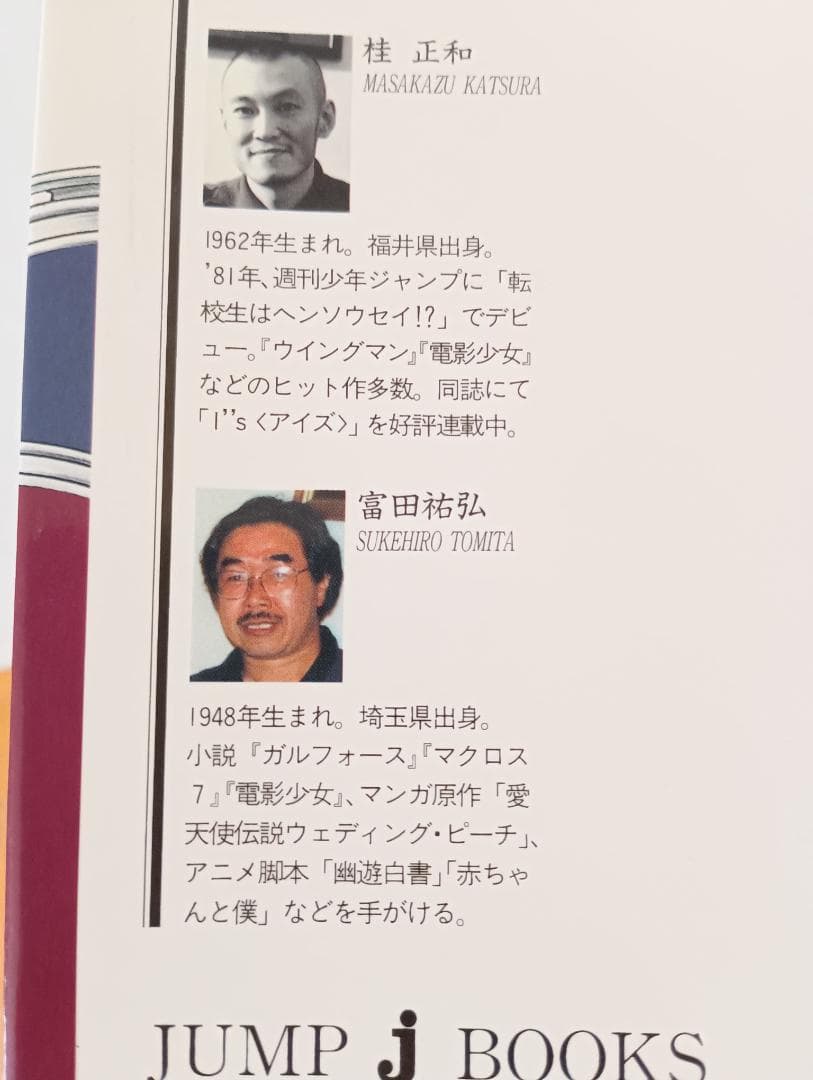 桂 正和
MASAKAZU KATSURA
1962年生まれ。福井県出身。
'81年、週刊少年ジャンプに「転
校生はヘンソウセイ!?」でデビ
ュー。『ウイングマン』『電影少女』
などのヒット作多数。同誌にて
「I"s〈アイズ〉」を好評連載中。
富田祐弘
SUKEHIRO TOMITA
1948年生まれ。埼玉県出身。
小説『ガルフォース』『マクロス
7』『電影少女』、マンガ原作「愛
天使伝説ウェディング・ピーチ」、
アニメ脚本「幽遊白書」「赤ちゃ
んと僕」などを手がける。
JUMP j BOOKS